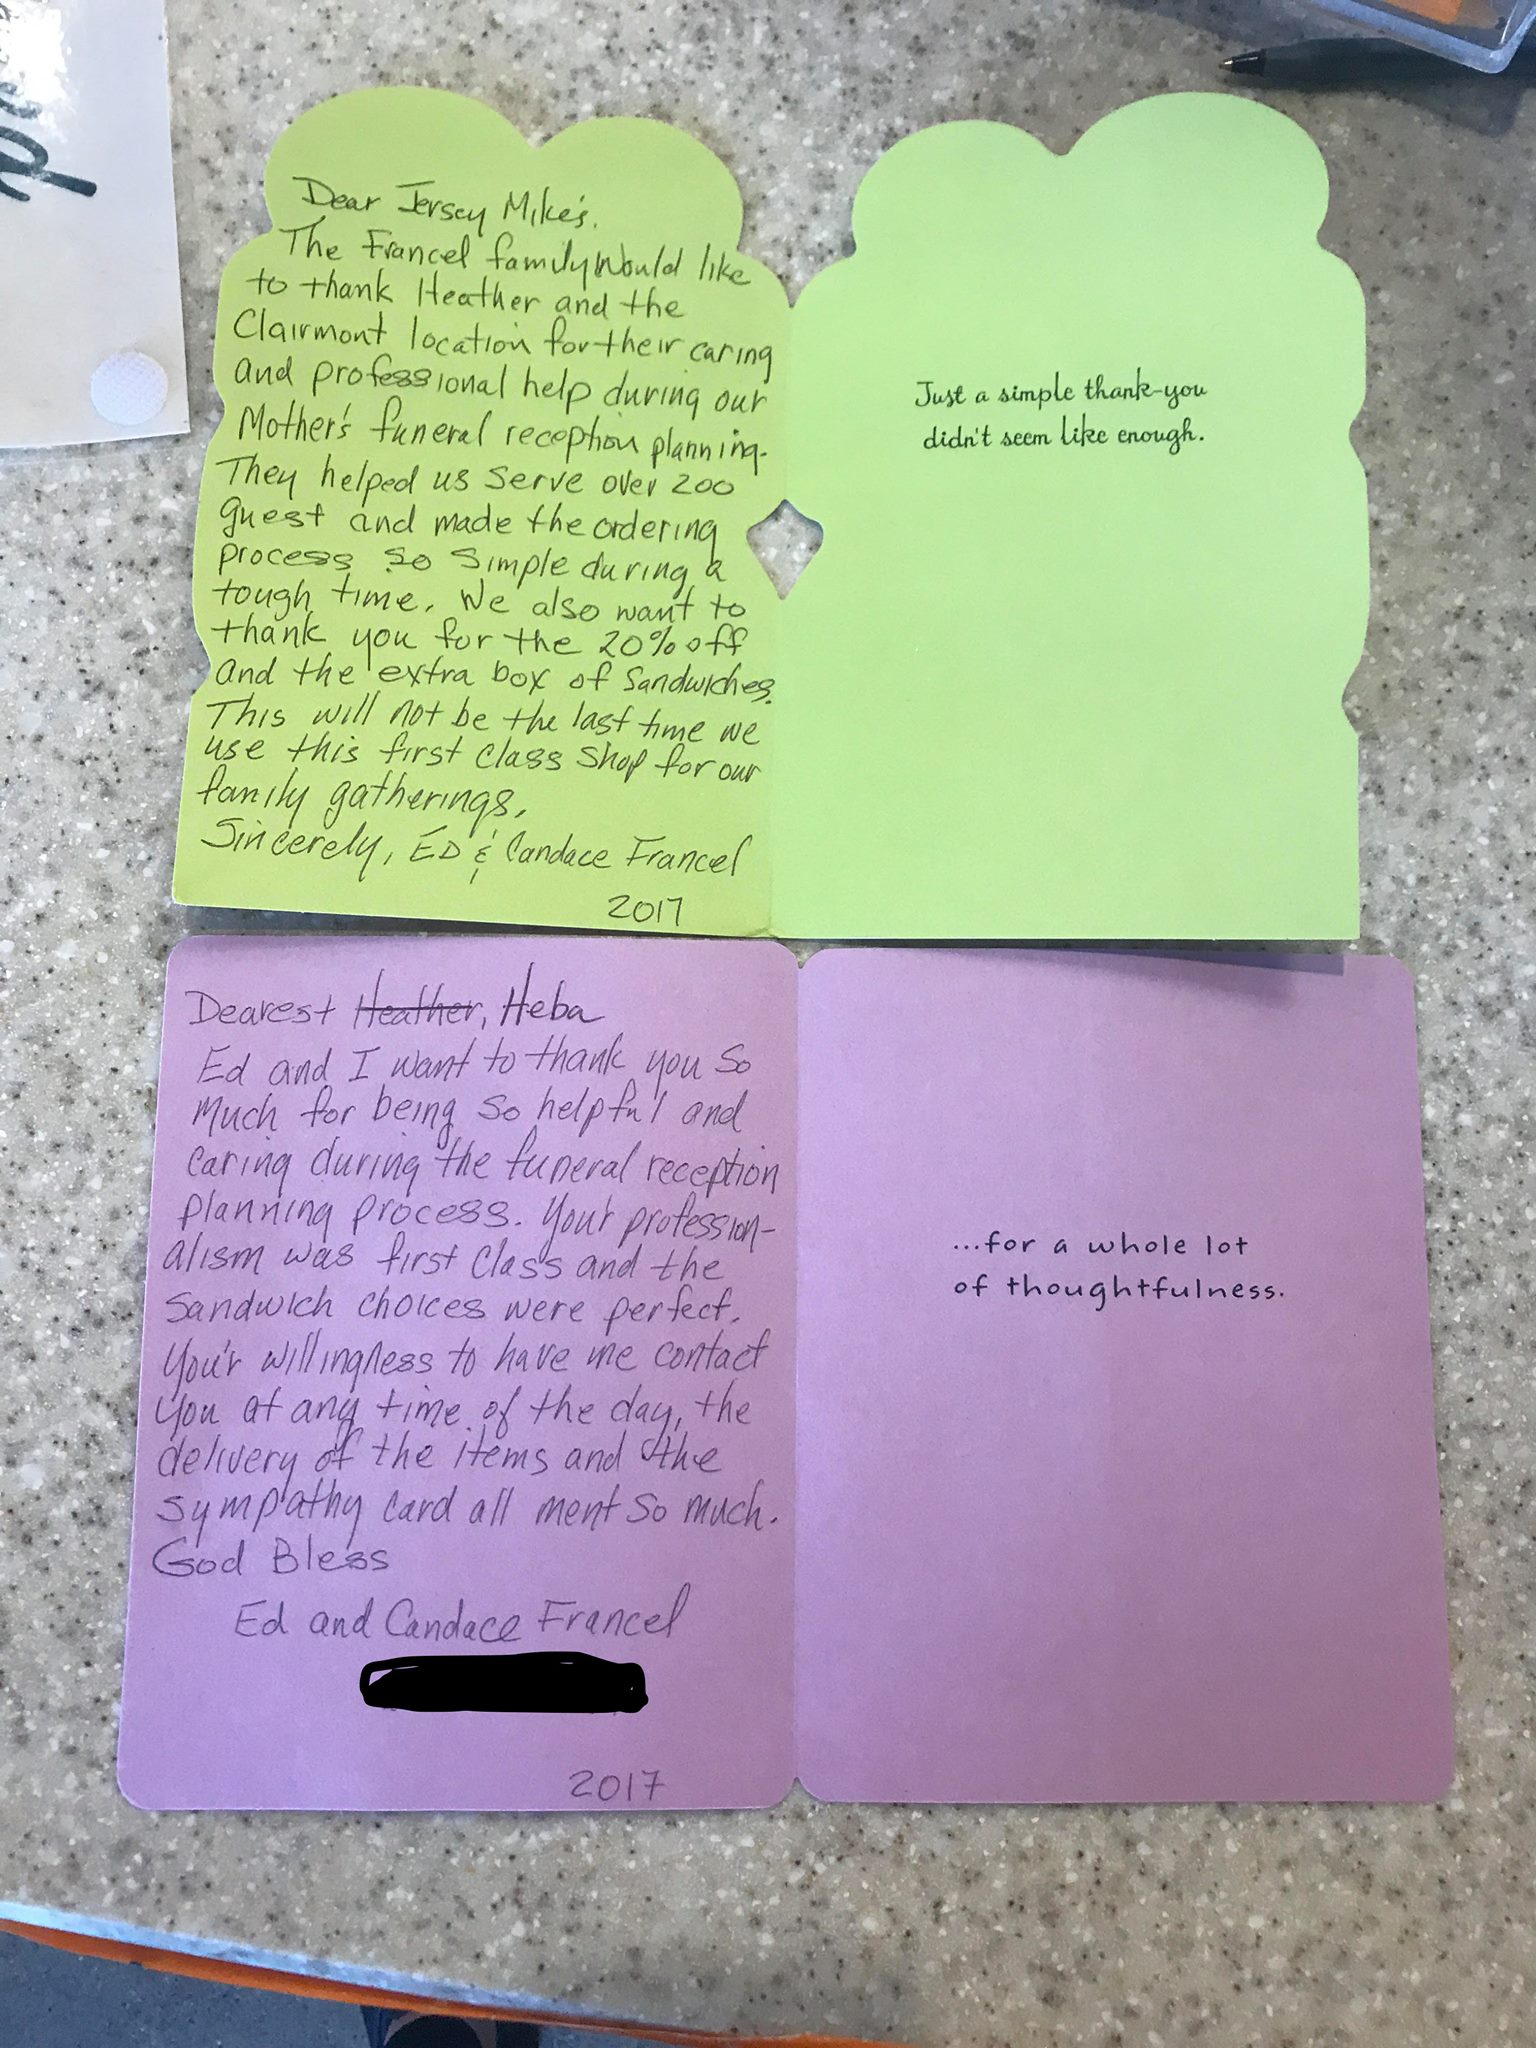 Dear Jersey Mike's.
The Francel family Would like
to thank Heather and the
Clairmont location for their caring
and professional help during our
Mother's funeral reception planning.
They helped us serve over 200
guest and made the ordering
process so simple during a
tough time. We also want to
thank you for the 20% off
and the extra box of Sandwiches.
This will not be the last time we
use this first class shop for our
family gatherings,
Sincerely, ED & Candace Francel
2017
Just a simple thank-you
didn't seem like enough.
Dearest Heather, Heba
Ed and I want to thank you so
much for being so helpful and
caring during the funeral reception
planning process. Your profession-
alism was first class and the
sandwich choices were perfect.
You'r willingness to have me contact
you at any time of the day, the
delivery of the items and the
sympathy card all ment so much.
God Bless
Ed and Candace Francel
2017
...for a whole lot
of thoughtfulness.